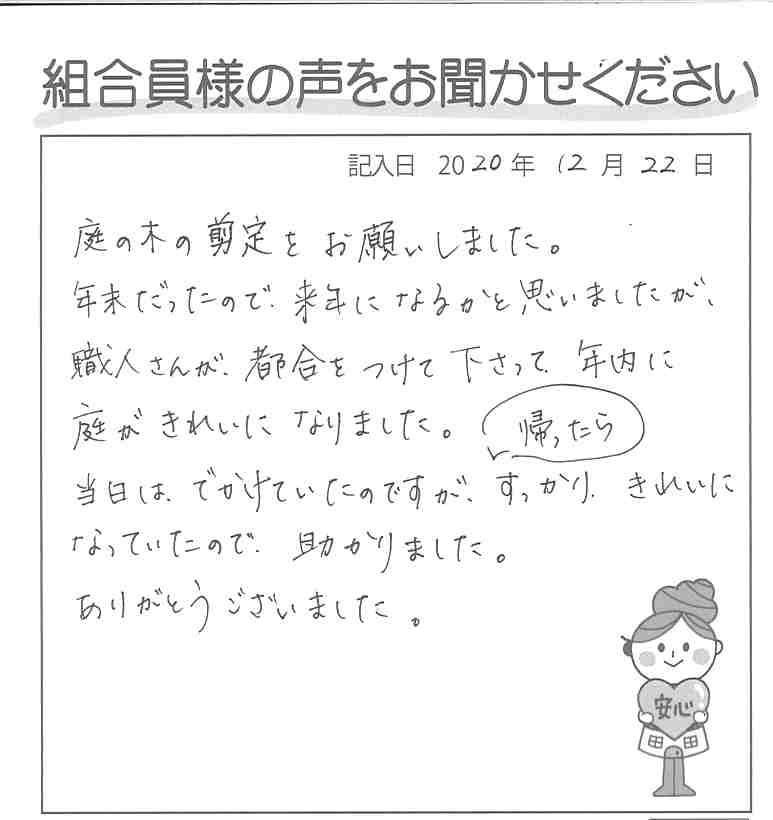 組合員様の声をお聞かせください
記入日 2020年 12月 22日
庭の木の剪定をお願いしました。
年末だったので、来年になるかと思いましたが、
職人さんが、都合をつけて下さって、年内に
庭がきれいになりました。
帰ったら
当日は、でかけていたのですが、すっかり、きれいに
なっていたので、助かりました。
ありがとうございました。
安心